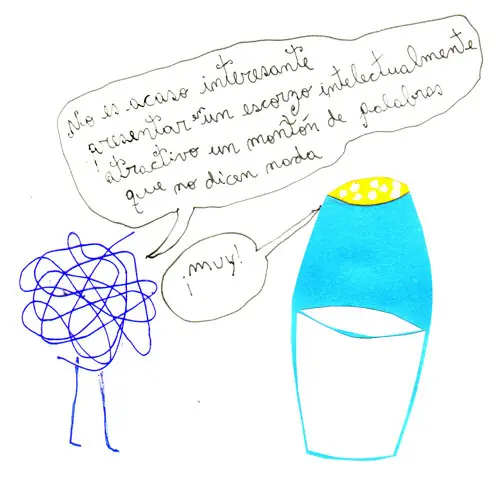 No es acaso interesante
presentar en un escorzo intelectualmente
atractivo un montón de palabras
que no dicen nada
¡muy!